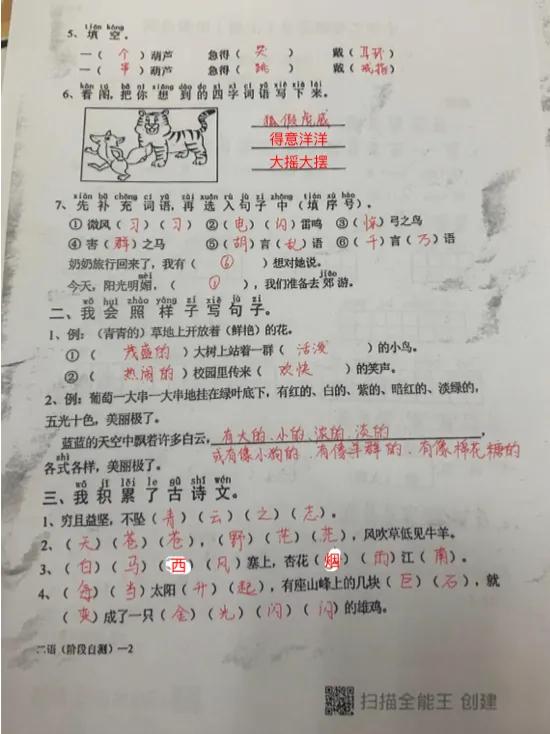 tián kòng
5、填 空。
一（ 个 ）葫芦 急得（ 哭 ） 戴（ 耳环 ）
一（ 串 ）葫芦 急得（ 跳 ） 戴（ 戒指 ）
kàn tú bǎ nǐ xiǎng dào de sì zì cí yǔ xiě xià lái
6、看 图，把 你 想 到 的 四 字 词 语 写 下 来。
狐假虎威
得意洋洋
大摇大摆
xiān bǔ chōng cí yǔ zài xuǎn rù jù zi zhōng tián xù hào
7、先 补 充 词 语，再 选 入 句 子 中（ 填 序 号）。
①微风（ 习 ）（ 习 ） ②（ 电 ）（ 闪 ）雷鸣 ③（ 惊 ）弓之鸟
④害（ 群 ）之马 ⑤（ 胡 ）言（ 乱 ）语 ⑥（ 千 ）言（ 万 ）语
奶奶旅行回来了，我有（ ⑥ ）想对她说。
mèi jiāo
今天，阳光明媚，（ ① ），我们准备去郊游。
wǒ huì zhào yàng zi xiě jù zi
二、我 会 照 样 子 写 句 子。
1、例：（青青的）草地上开放着（鲜艳）的花。
①（ 茂盛的 ）大树上站着一群（ 活泼 ）的小鸟。
②（ 热闹的 ）校园里传来（ 欢快 ）的笑声。
2、例：葡萄一大串一大串地挂在绿叶底下，有红的、白的、紫的、暗红的、淡绿的，
五光十色，美丽极了。
蓝蓝的天空中飘着许多白云，有大的、小的、浓的、淡的
或有像小狗的、有像羊群的、有像棉花糖的
shì
各式各样，美丽极了。
wǒ jī lěi le gǔ shī wén
三、我 积 累 了 古 诗 文。
1、穷且益坚，不坠（ 青 ）（ 云 ）（ 之 ）（ 志 ）。
2、（ 天 ）（ 苍 ）（ 苍 ），（ 野 ）（ 茫 ）（ 茫 ），风吹草低见牛羊。
3、（ 白 ）（ 马 ）（ 西 ）（ 风 ）塞上，杏花（ 烟 ）（ 雨 ）江（ 南 ）。
4、（ 每 ）（ 当 ）太阳（ 升 ）（ 起 ），有座山峰上的几块（ 巨 ）（ 石 ），就
（ 变 ）成了一只（ 金 ）（ 光 ）（ 闪 ）（ 闪 ）的雄鸡。
二语（阶段自测）—2
扫描全能王 创建